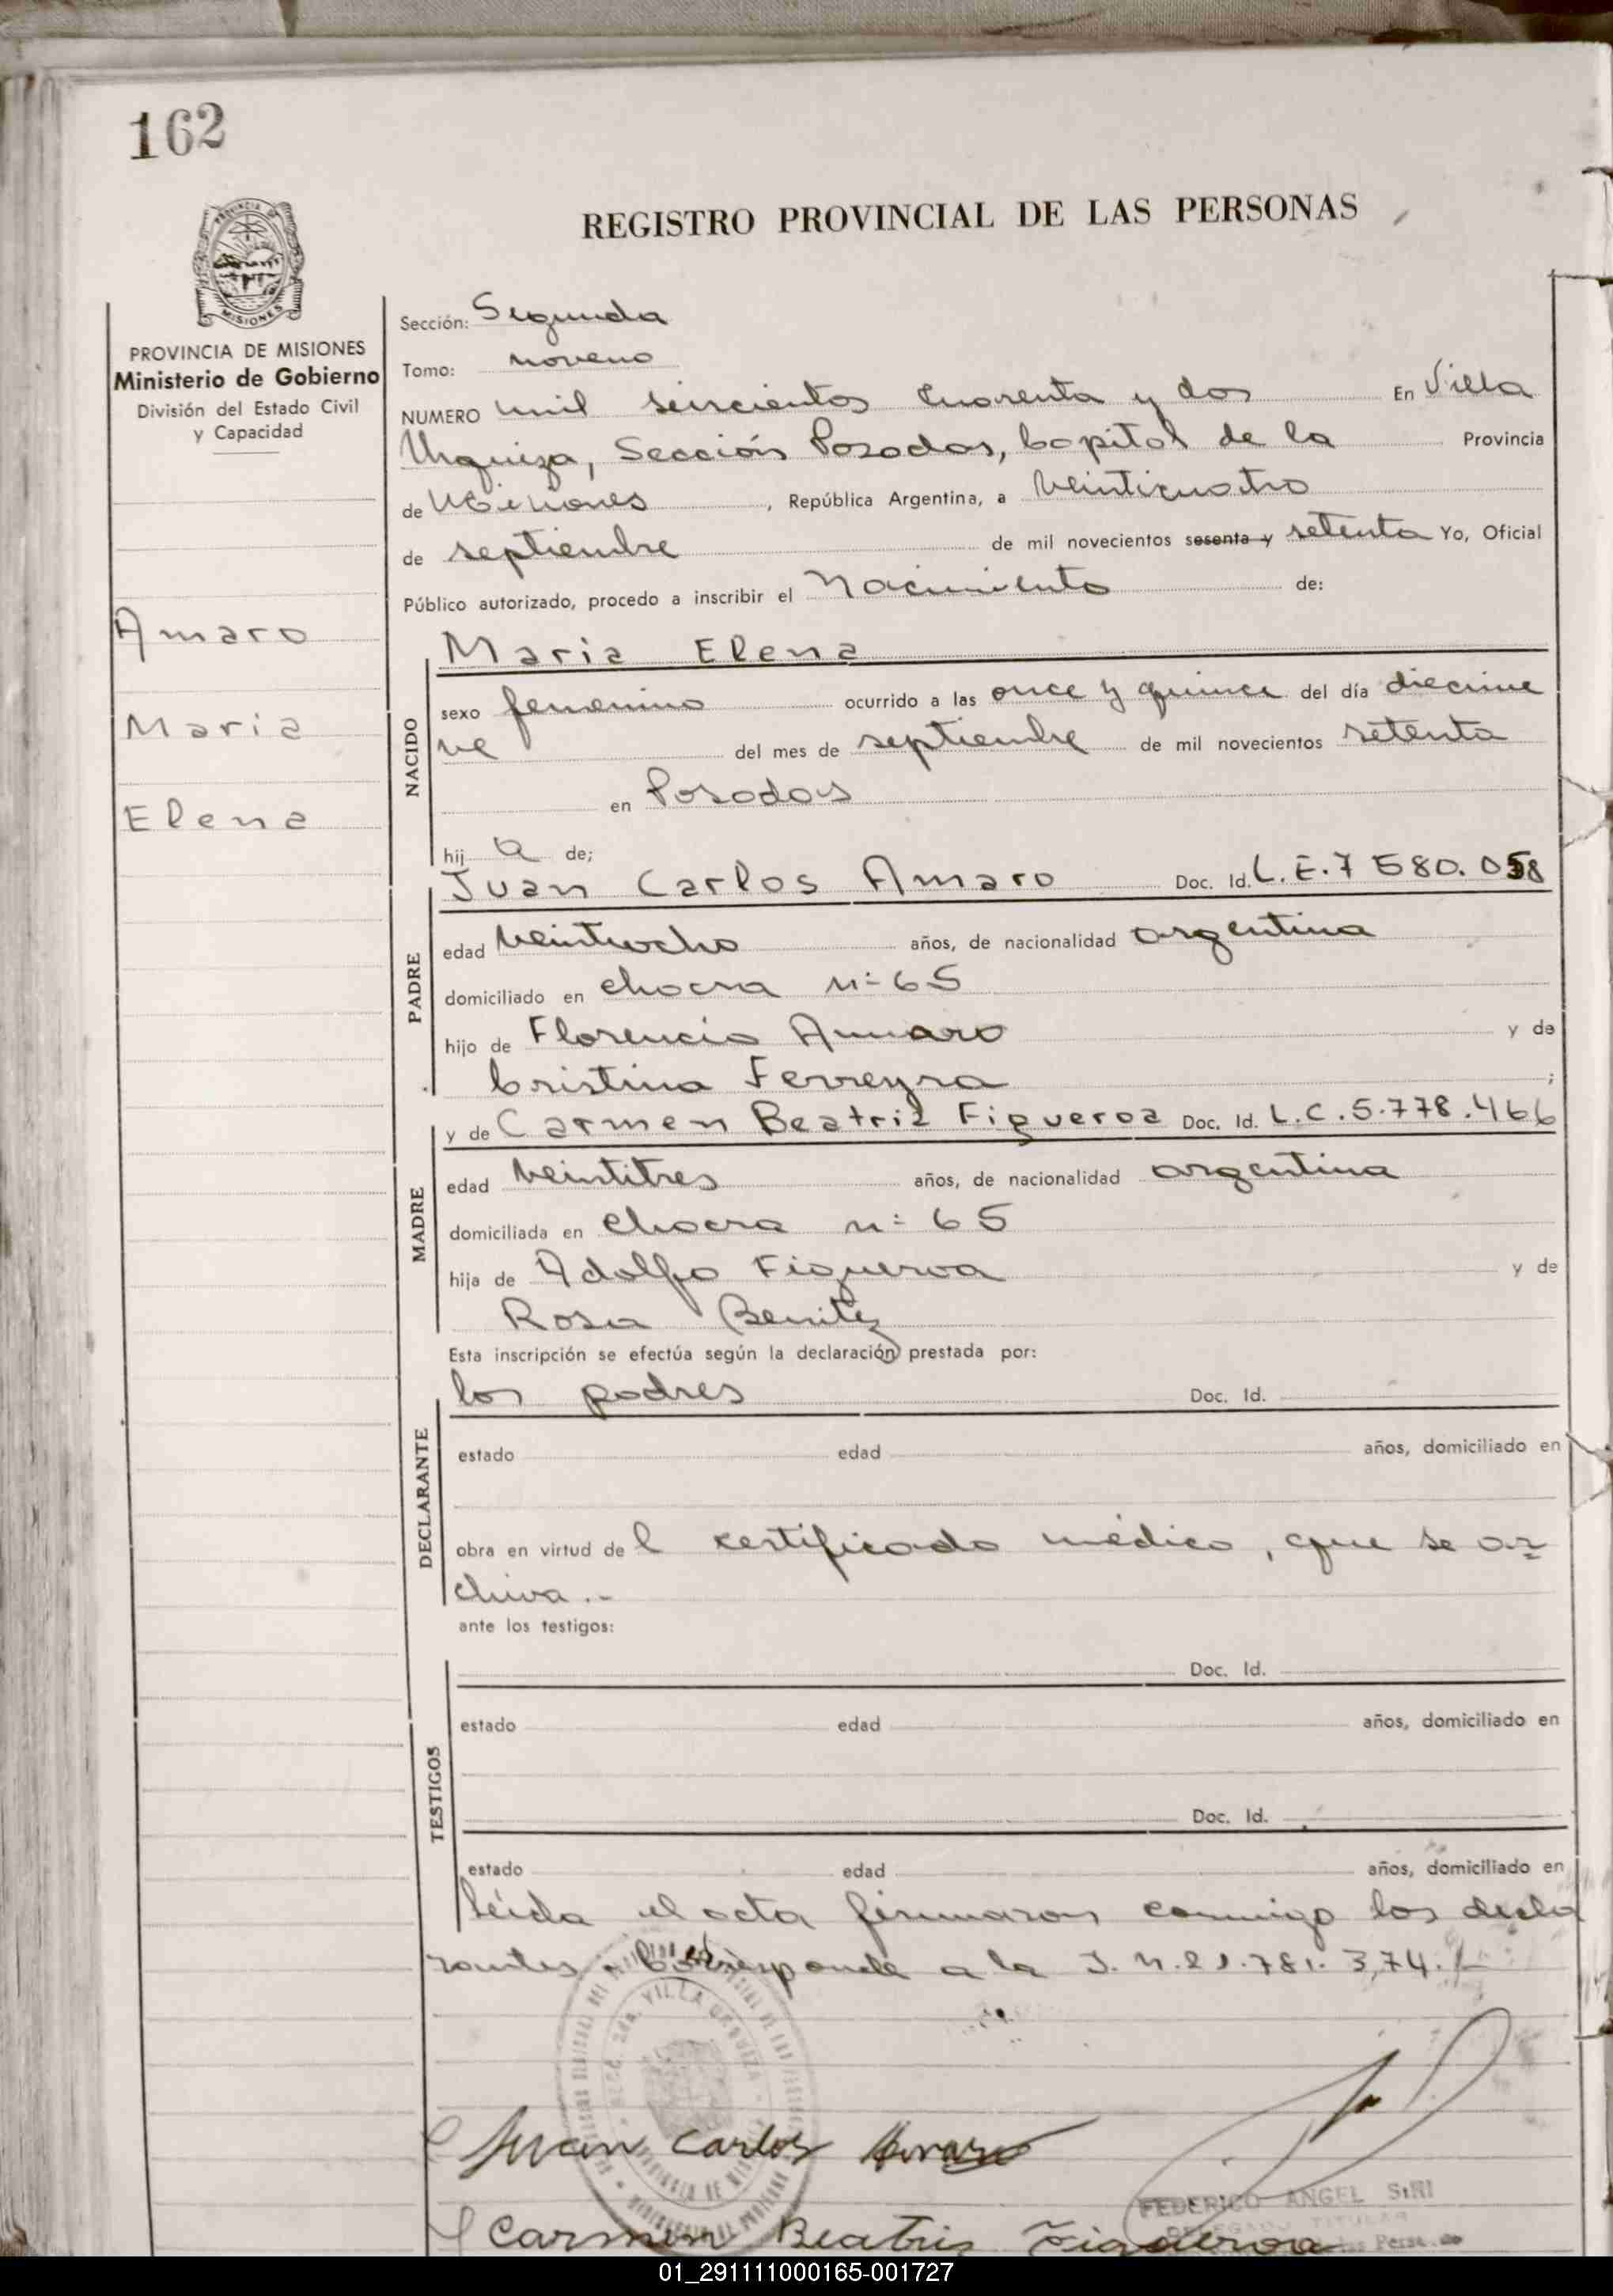 162
REGISTRO PROVINCIAL DE LAS PERSONAS
MISIONES
PROVINCIA DE MISIONES
Ministerio de Gobierno
División del Estado Civil
y Capacidad
Amaro
Maria
Elena
Sección: Segunda
Tomo: noveno
NUMERO mil seiscientos cuarenta y dos En Villa
Urquiza, Sección Posadas, Capital de la Provincia
de Misiones, República Argentina, a veinticuatro
de septiembre de mil novecientos sesenta y setenta Yo, Oficial
Público autorizado, procedo a inscribir el Nacimiento de:
NACIDO
Maria Elena
sexo femenino ocurrido a las once y quince del día diecinue
ve del mes de septiembre de mil novecientos setenta
en Posadas
hij a de;
PADRE
Juan Carlos Amaro Doc. Id. L.E.7 580.058
edad veintiocho años, de nacionalidad argentina
domiciliado en chacra n= 65
hijo de Florencio Amaro y de
Cristina Ferreyra ;
MADRE
y de Carmen Beatriz Figueroa Doc. Id. L.C.5.778.466
edad veintitres años, de nacionalidad argentina
domiciliada en chacra n= 65
hija de Adolfo Figueroa y de
Rosa Benitez
Esta inscripción se efectúa según la declaración prestada por:
DECLARANTE
los padres Doc. Id.
estado edad años, domiciliado en
obra en virtud de l certificado médico, que se ar
chiva.-
ante los testigos:
TESTIGOS
Doc. Id.
estado edad años, domiciliado en
Doc. Id.
estado edad años, domiciliado en
leida el acta firmaron conmigo los decla
rantes. Corresponde a la I.N.21.781.374.
SECC. 2da. VILLA URQUIZA
Juan Carlos Amaro
FEDERICO ANGEL SIRI
DELEGADO TITULAR
Carmen Beatris Figueroa
01_291111000165-001727